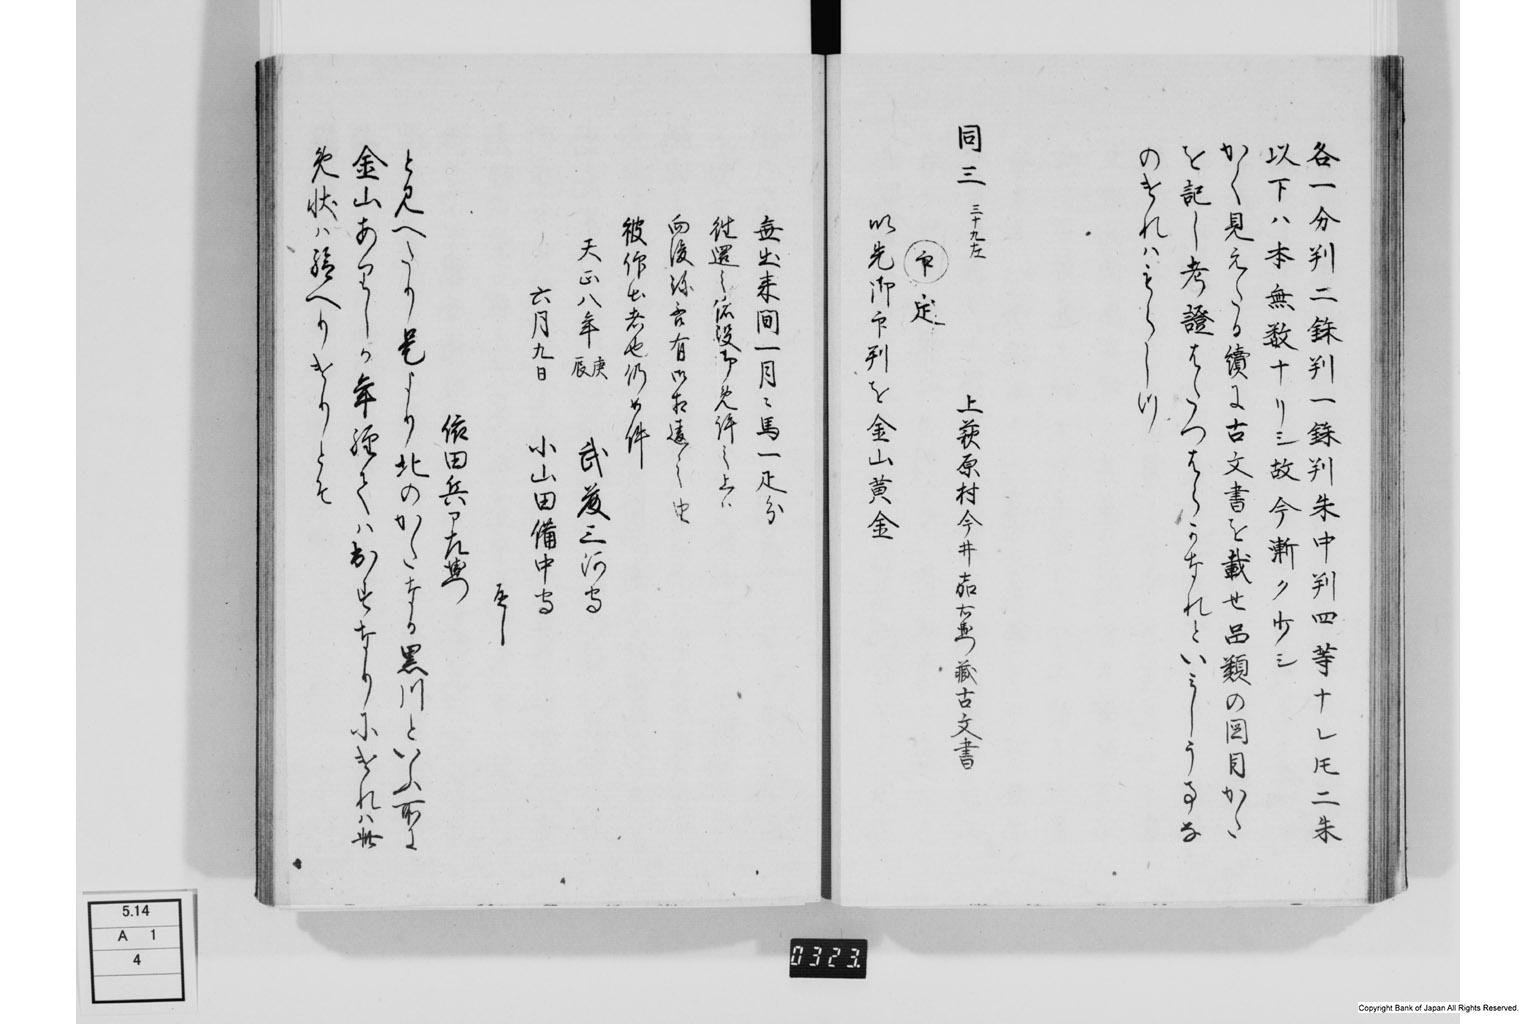 各一分判二銖判一銖判朱中判四等ナレ𪜈二朱
以下ハ本無数ナリシ故今漸ク少シ
かく見えたる續に古文書を載せ品類の図目かた
を記し考證
のすれハ
同三 三十九左
上萩原村今井 右衛門蔵古文書
印 定
以先御印判を金山黄金
無出来間一月ニ馬一疋分
往還之諸役御免許之上ハ
向後
被 出者也仍如件
天正八年庚辰 武藤三河守
六月九日 小山田備中守
依田兵部左衛門
とし
と見へたり是より北のかたなる黒川といふ所に
金山ありしか年經てハ出すなりにけれハ此
免状ハ給へりけりとそ
5.14
A 1
4
0323.
Copyright Bank of Japan All Rights Reserved.